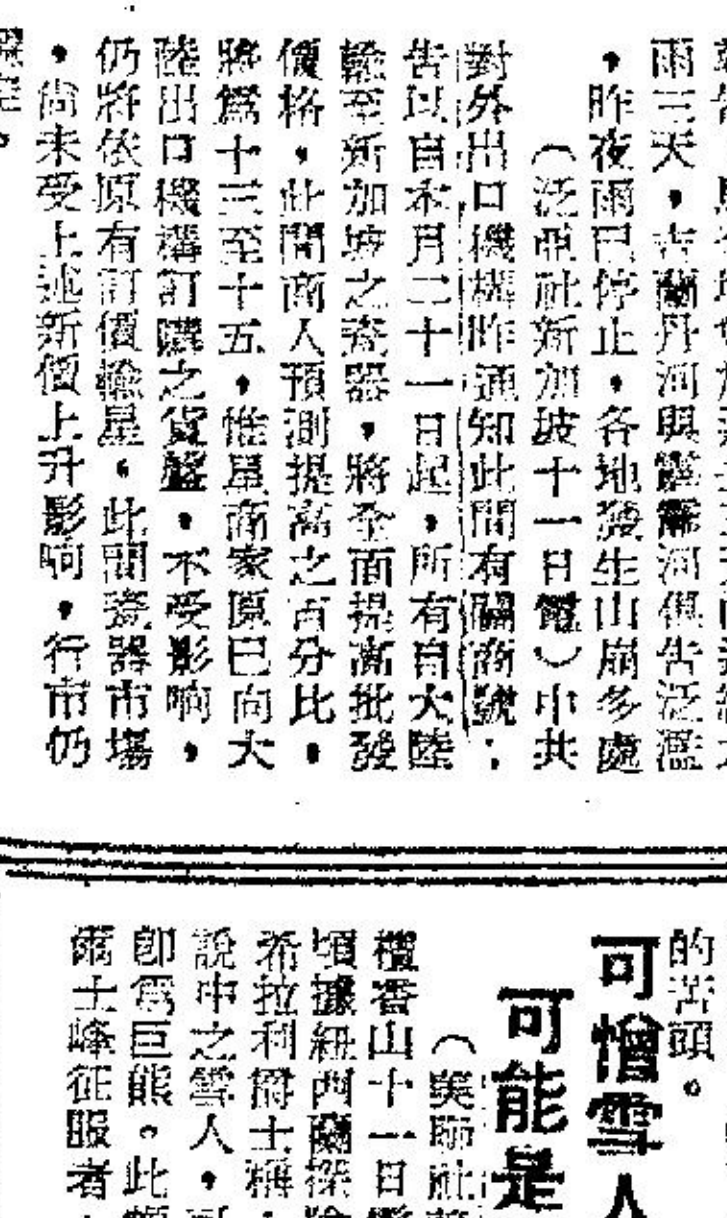 雨三天,吉蘭丹河與霹靂河俱告泛濫
,昨夜雨已停止,各地發生山崩多處
(泛亞社新加坡十一日電)中共
對外出口機構昨通知此間有關商號,
告以自本月二十一日起,所有自大陸
輸至新加坡之瓷器,將全面提高批發
價格,此間商人預測提高之百分比,
將為十三至十五,惟星商家原已向大
陸出口機構訂購之貨盤,不受影响,
仍將依原有訂價輸星。此間瓷器市場
,尚未受上述新價上升影响,行市仍
的苦頭。
可憎雪人
可能是
(美聯社
檀香山十一日
頃據紐西蘭探險
希拉利爵士稱,
說中之雪人,
即為巨熊。此
爾士峰征服者,